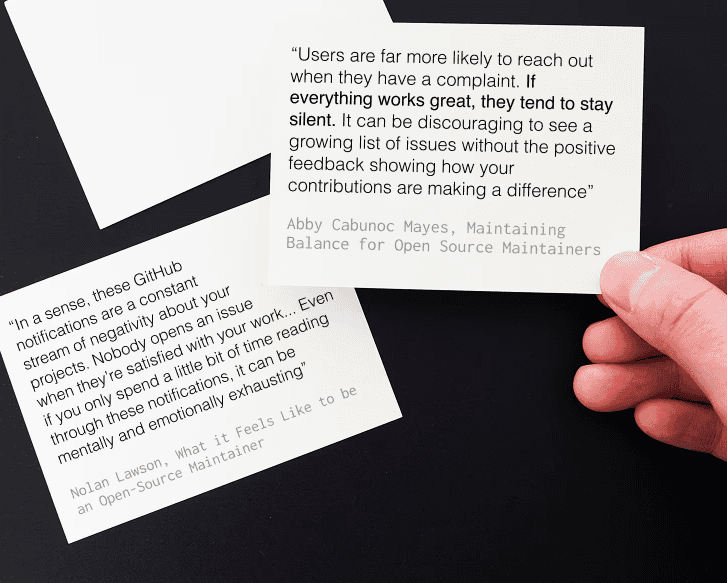 “Users are far more likely to reach out
when they have a complaint. If
everything works great, they tend to stay
silent. It can be discouraging to see a
growing list of issues without the positive
feedback showing how your
contributions are making a difference”
Abby Cabunoc Mayes, Maintaining
Balance for Open Source Maintainers
“In a sense, these GitHub
notifications are a constant
stream of negativity about your
projects. Nobody opens an issue
when they’re satisfied with your work... Even
if you only spend a little bit of time reading
through these notifications, it can be
mentally and emotionally exhausting”
Nolan Lawson, What it Feels Like to be
an Open-Source Maintainer